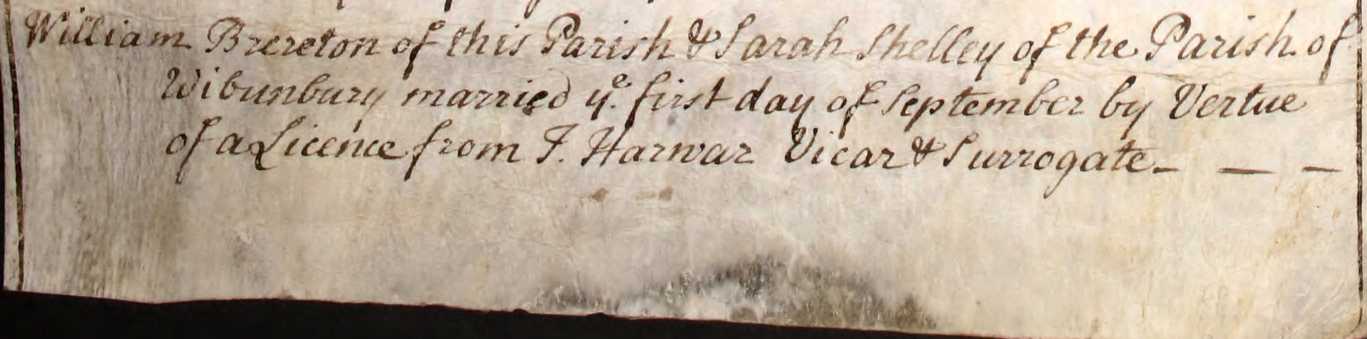 William Brereton of this Parish & Sarah Shelley of the Parish of
Wibunbury married ye. first day of September by Vertue
of a Licence from F. Harwar Vicar & Surrogate - — —